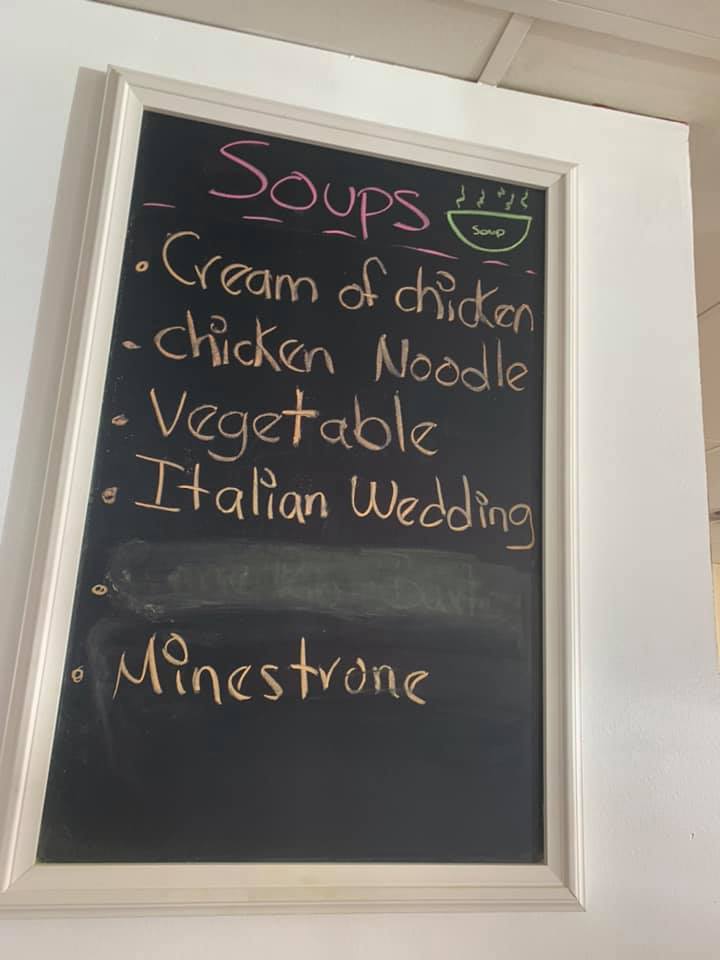 Soups
Soup
Cream of chicken
chicken Noodle
Vegetable
Italian Wedding
Minestrone